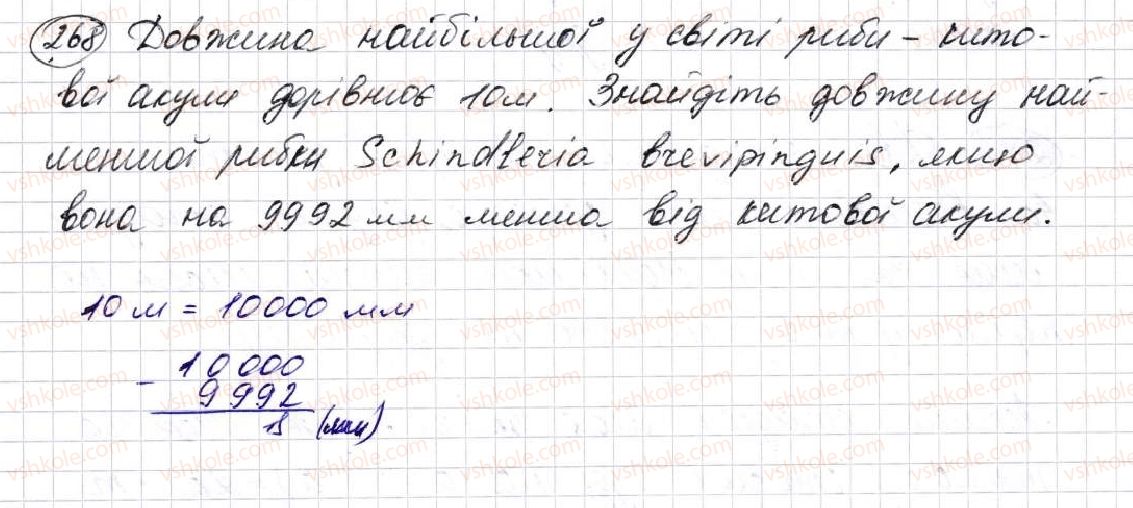 268 Довжина найбільшої у світі риби – кито-
вої акули дорівнює 10м. Знайдіть довжину най-
меншої рибки Schindleria brevipinguis, якщо
вона на 9992 мм менша від китової акули.
10 м = 10000 мм
- 10 000
9 992
(мм)